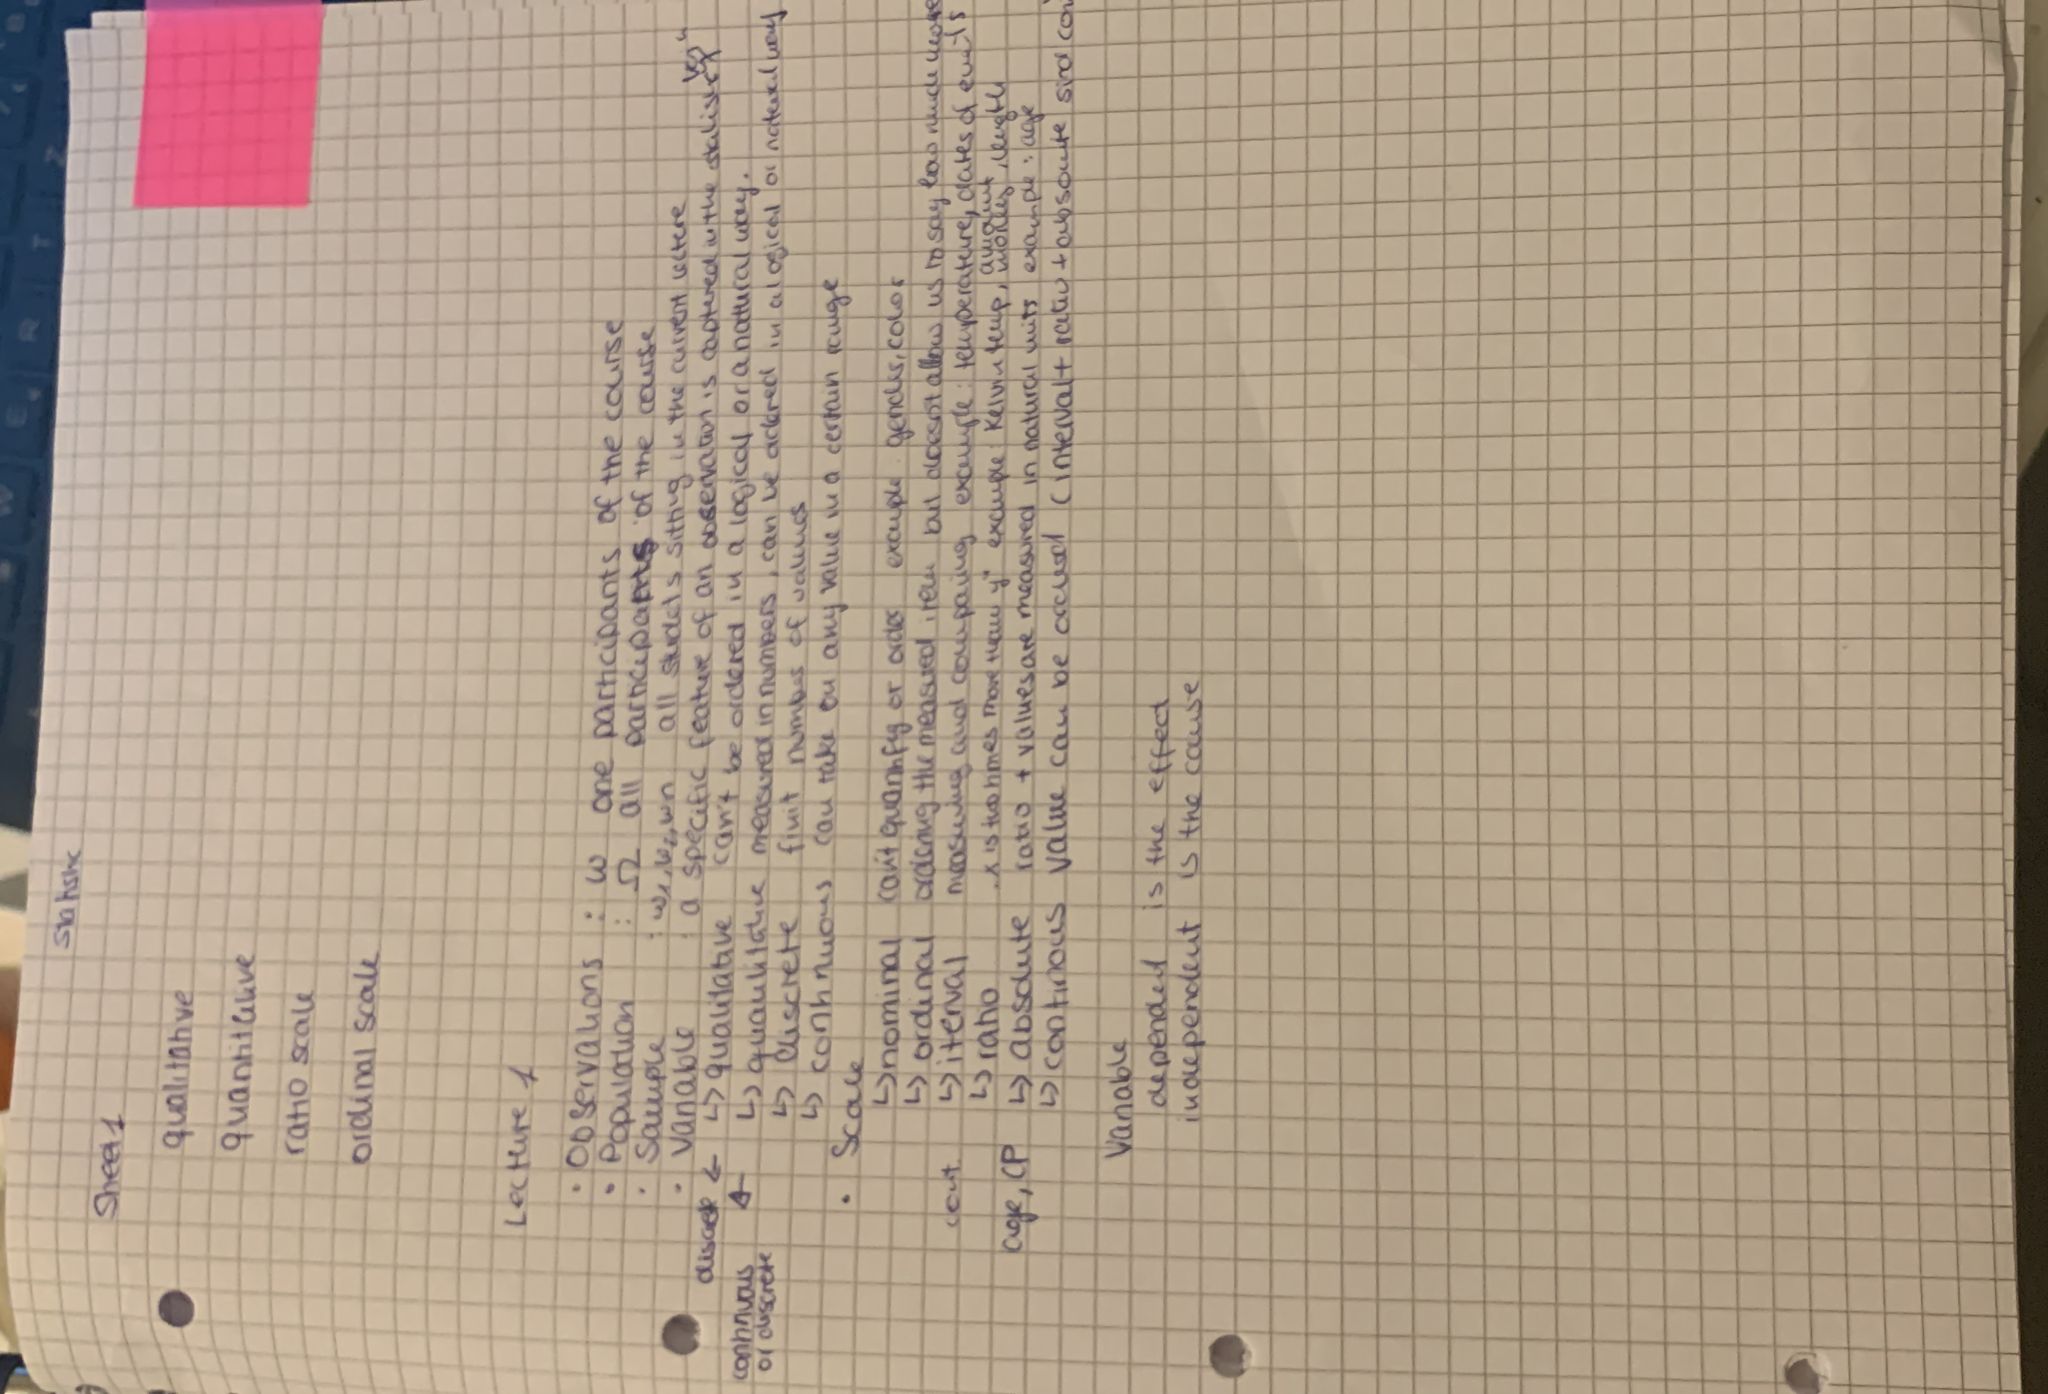 Statistic
Sheet 1
qualitative
quantitative
ratio scale
ordinal scale
Lecture 1
• Observations : ω one participants of the course
• Population : Ω all participants of the course
• Sample : w1, w2, wn all students sitting in the current lecture
• Variable : a specific feature of an observation is captured in the statistical
discrete ← ↳ qualitative can't be ordered in a logical or a natural way.
continuous or discrete ← ↳ quantitative measured in numbers, can be ordered in a logical or natural way
↳ discrete finit number of values
↳ continuous can take on any value in a certain range
• Scale
↳ nominal can't quantify or order example: gender, color
↳ ordinal ordering the measured item but doesn't allow us to say how much more
cont. ↳ iterval measuring and comparing example: temperature, dates of events
↳ ratio "x is two times more than y" example: Kelvin temp, amount money, length
age, CP ↳ absolute ratio + values are measured in natural units example: age
↳ continous value can be (interval + ratio + absolute sind
Variable
depended is the effect
independent is the cause